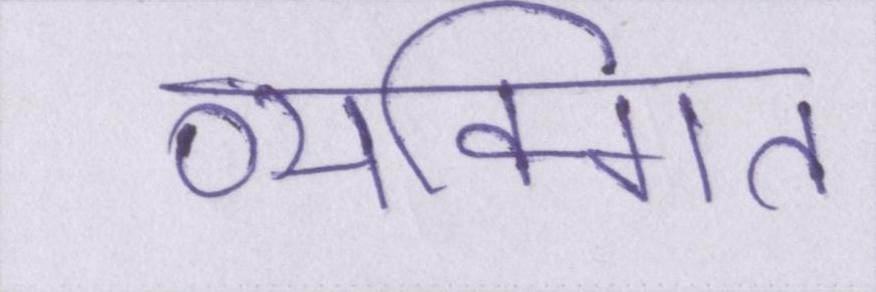 व्यक्गित